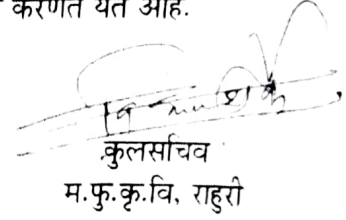 करणेत येत आहे.
कुलसचिव
म.फु.कृ.वि, राहुरी